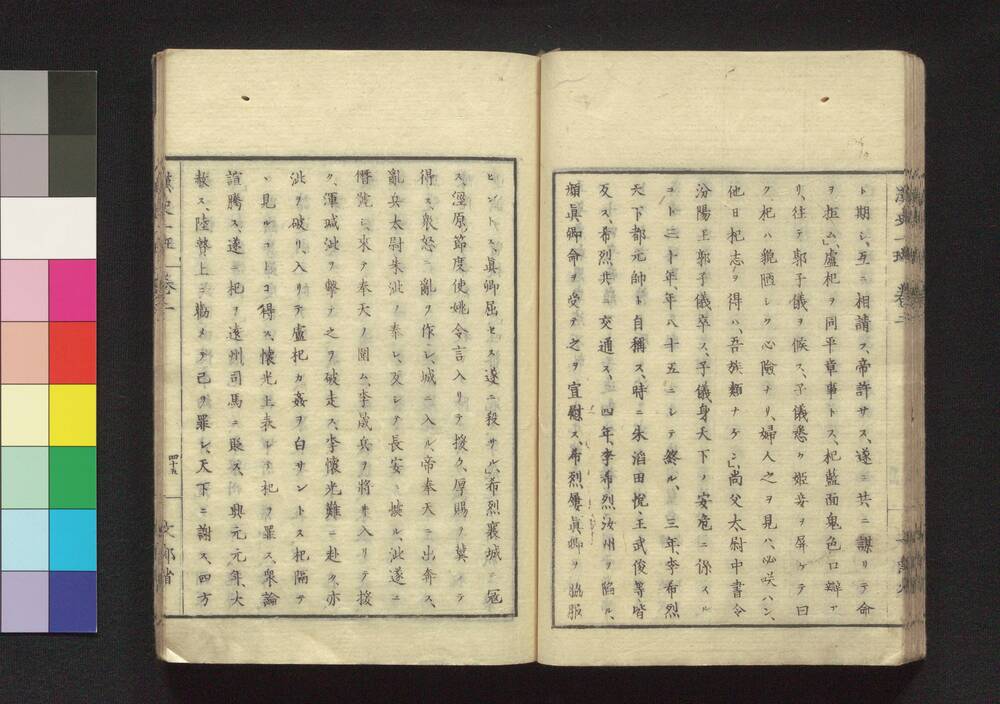 ト期シ、互ニ相請フ、帝許サス、遂ニ共ニ謀リテ命
ヲ拒ム」、盧杞ヲ同平章事トス、杞藍面鬼色口辯ア
リ、往テ郭子儀ヲ候ス、子儀悉ク姫妾ヲ屏ケテ曰
ク、杞ハ貌陋シク心險ナリ、婦人之ヲ見ハ、必咲ハン、
他日杞志ヲ得ハ、吾族類ナケン」、尚父太尉中書令
汾陽王郭子儀卒ス、子儀身天下ノ安危ニ係スル
コト二十年、年八十五ニシテ終ル、三年、李希烈
天下都元帥ト自稱ス、時ニ朱滔田悅、王武俊等皆
反ス、希烈共ニ交通ス、四年、李希烈汝州ヲ陷ル、
顔眞卿命ヲ受テ之ヲ宣慰ス、希烈屢眞卿ヲ脇服
セントス、眞卿屈セス遂ニ殺サル」、希烈襄城ニ寇
ス、涇原節度使姚令言入リテ援ク、厚賜ヲ冀
得ス、衆怒ニ亂ヲ作シ、城ニ入ル帝奉天ニ出奔ス、
亂兵太尉朱泚ヲ奉シ、反シテ長安ニ據ル、泚遂ニ
僭號シ、來テ奉天ヲ圍ム、李晟兵ヲ將ヰ入リテ援
ク、渾瑊泚ヲ擊テ之ヲ破走ス、李懷光難ニ赴ク、亦
泚ヲ破リ、入リテ盧杞カ姦ヲ白サントス杞隔テ
見ル得ス、懷光上表シテ杞ヲ罪ス、衆論
諠騰ス、遂ニ杞ヲ遠州司馬ニ貶ス、興元元年、大
赦ス、陸贄上ニ勸メテ己ヲ罪シ、天下ニ謝ス、四方
漢史一班 卷二
四十五
文部省